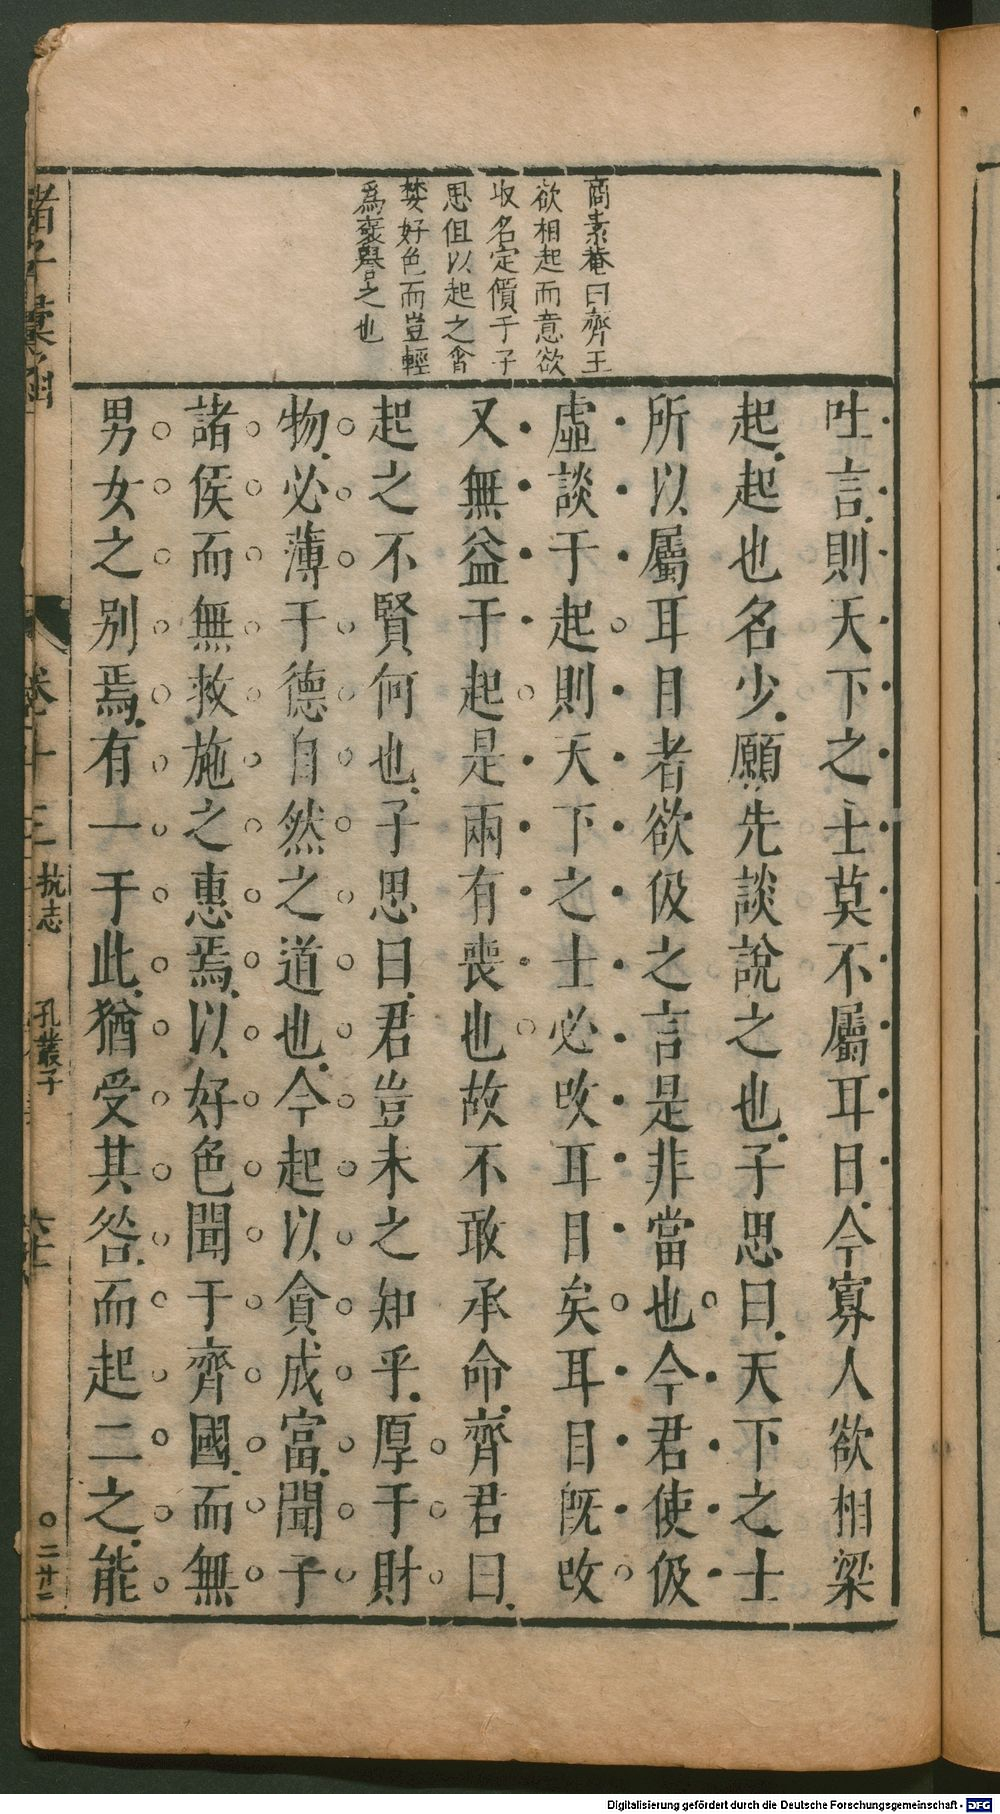 商素菴曰齊王
欲相起而意欲
收名定價于子
思但以起之貪
婪好色而豈輕
爲褒譽之也
吐言則天下之士莫不屬耳目今寡人欲相梁
起起也名少願先談說之也子思曰天下之士
所以屬耳目者欲伋之言是非當也今君使伋
虛談于起則天下之士必改耳目矣耳目既改
又無益于起是兩有喪也故不敢承命齊君曰
起之不賢何也子思曰君豈未之知乎厚于財
物必薄于德自然之道也今起以貪成富聞于
諸侯而無救施之惠焉以好色聞于齊國而無
男女之別焉有一于此猶受其咎而起二之能
諸子彙函
卷十三 抗志 孔叢子